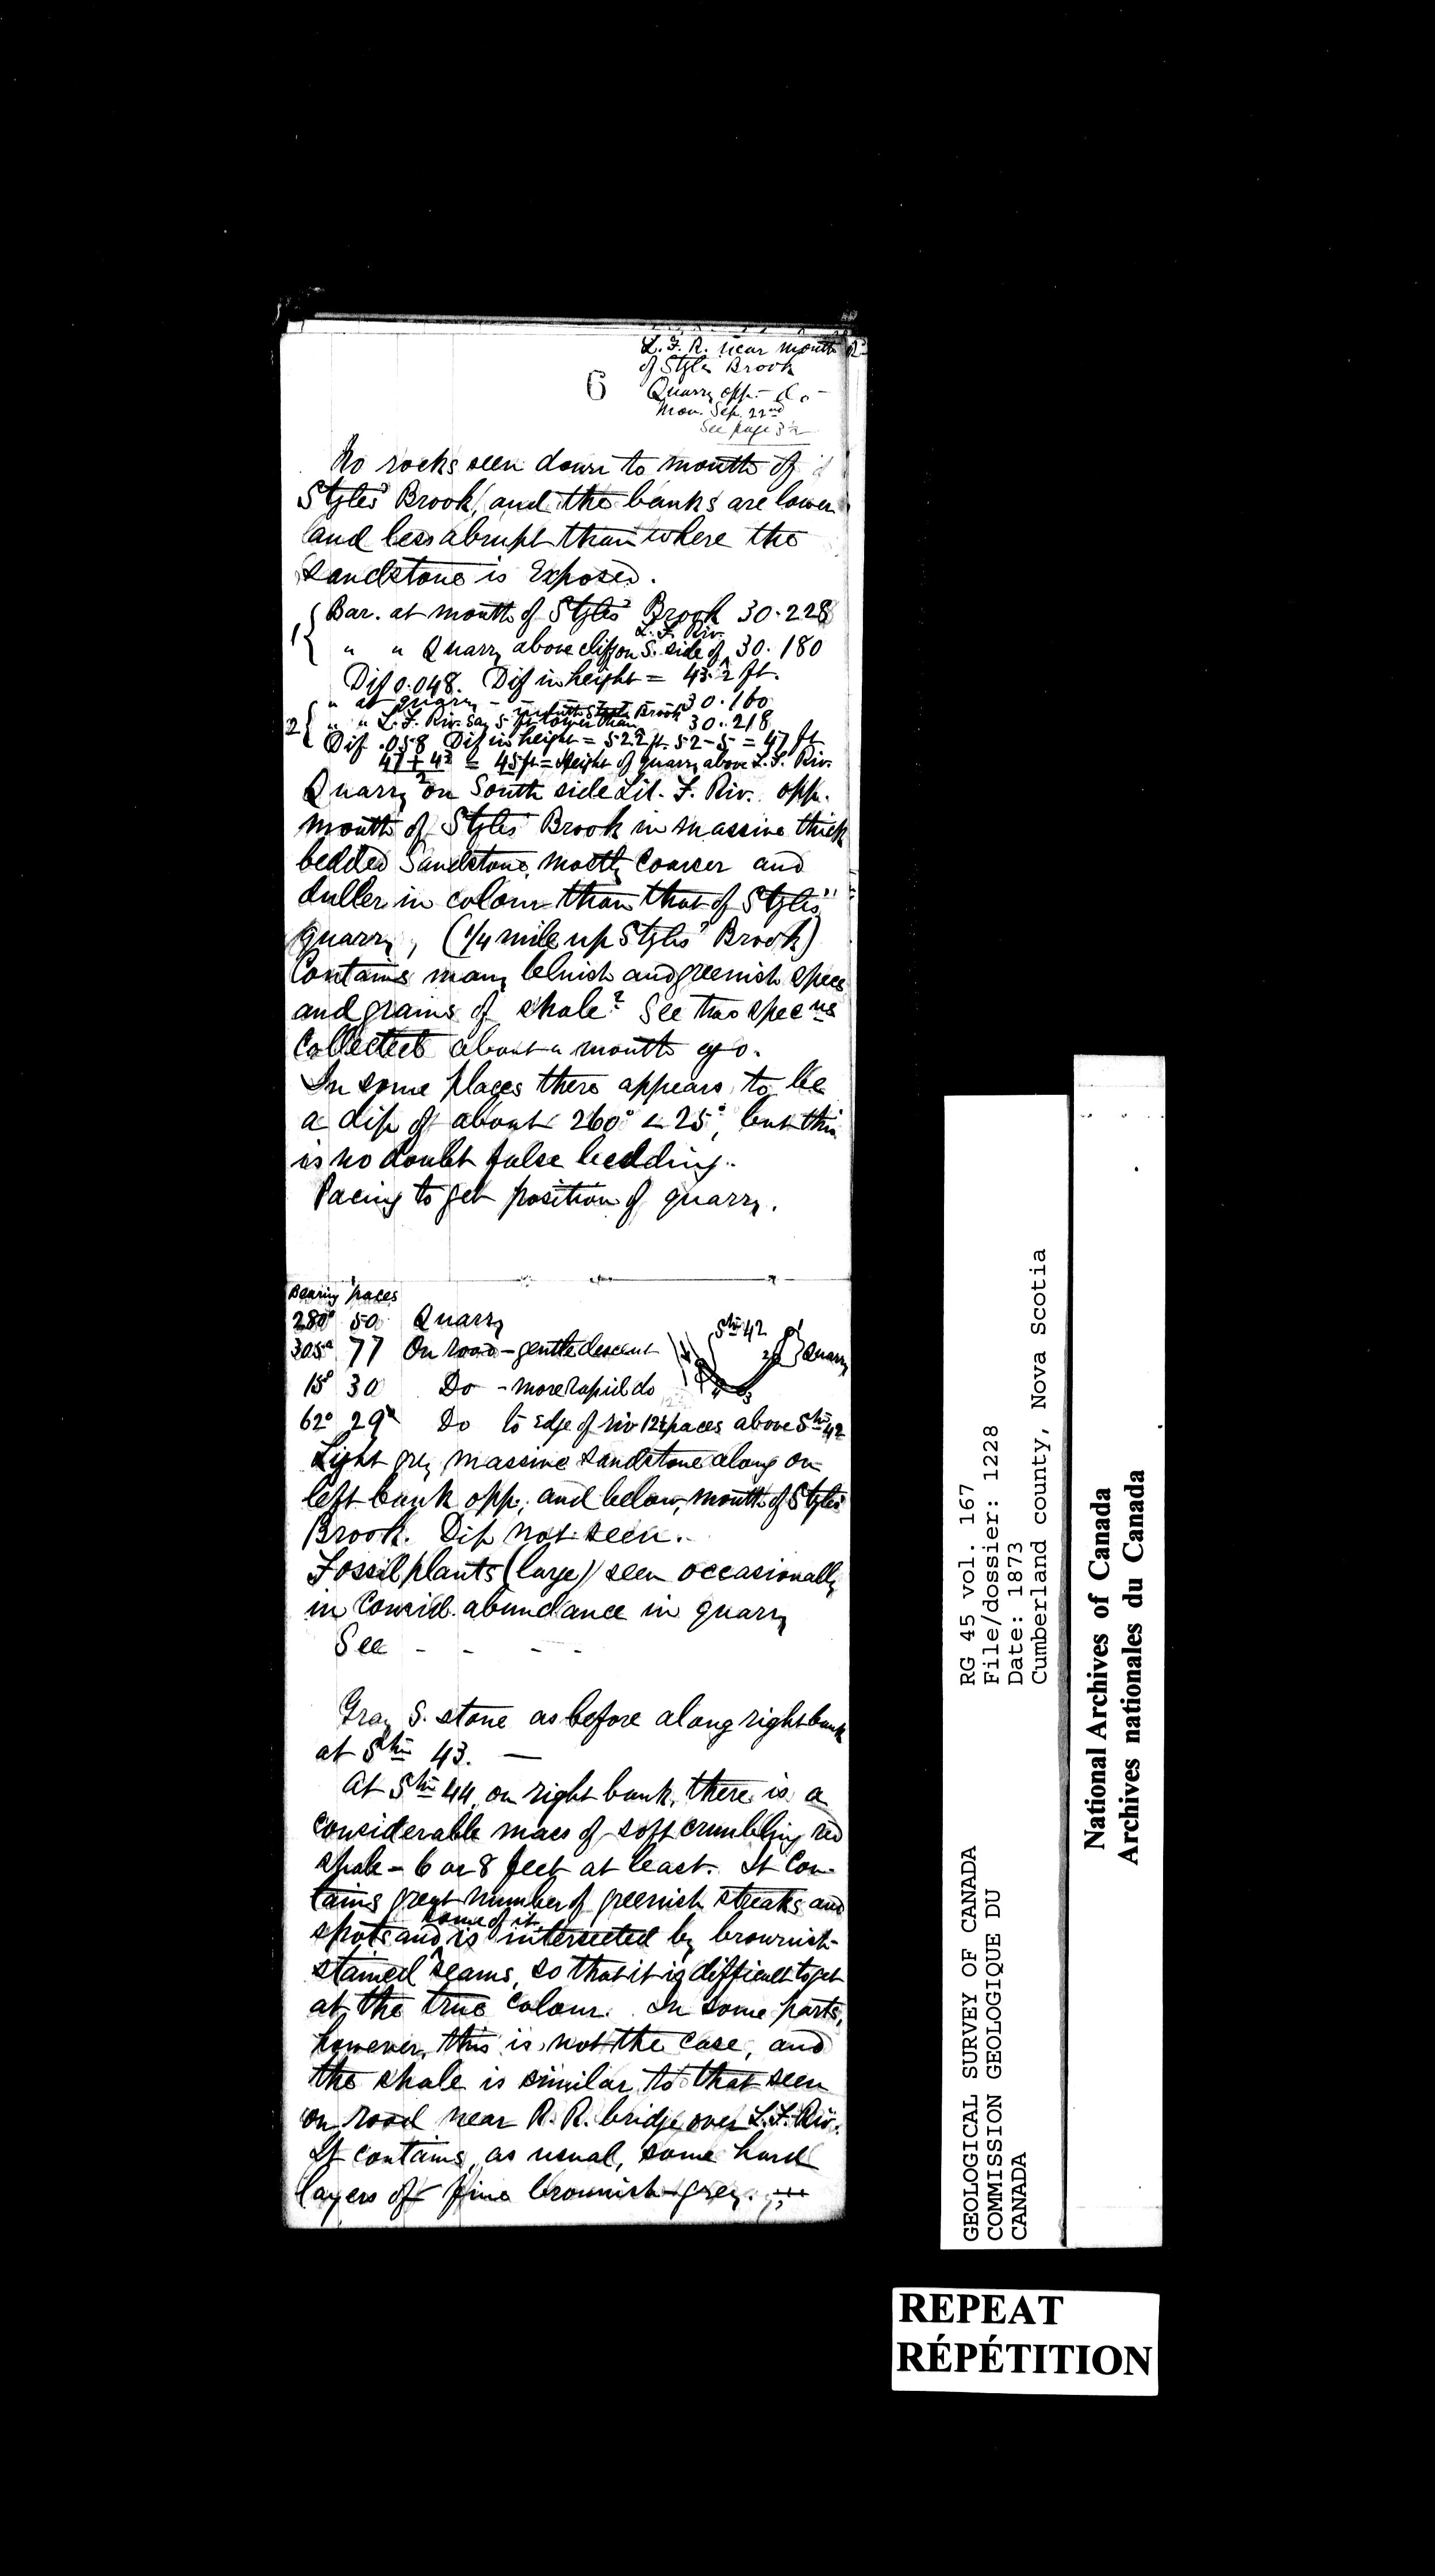 L. F. R. near mouth
of Styles Brook
6
Quarry opp. - do -
Mon. Sep. 22nd
See page 3½
No rocks seen down to mouth of
Styles' Brook, and the banks are lower
and less abrupt than where the
sandstone is Exposed.
1 { Bar. at mouth of Styles' Brook 30.228
" " Quarry above cliff on S. side of L. F. Riv. 30.180
Dif 0.048. Dif in height = 43.2 ft.
2 { " at quarry - - - - 30.160
" " L. F. Riv. say 5 ft lower than mouth Styles Brook 30.218
Dif .058 Dif in height = 52.2 ft. 52-5 = 47 ft
47 + 43 / 2 = 45 ft = Height of quarry above L. F. Riv.
Quarry on South side Lit. F. Riv. opp.
mouth of Styles' Brook in massive thick
bedded Sandstone, mostly coarser and
duller in colour than that of Styles'
quarry, (1/4 mile up Styles' Brook)
Contains many bluish and greenish specs
and grains of shale? See two specns
collected about a month ago.
In some places there appears to be
a dip of about 260° < 25°, but this
is no doubt false bedding.
Pacing to get position of quarry.
Bearing paces
280° 50 Quarry
305° 77 On road - gentle descent
15° 30 Do - more rapid do
62° 29 Do to edge of riv 12½ paces above Stn 42
Stn 42
1
2
3
4
Quarry
Light grey massive sandstone along on
left bank opp. and below, mouth of Styles
Brook. Dip not seen.
Fossil plants (large) seen occasionally
in consid. abundance in quarry
See - - - -
Gray S. stone as before along right bank
at Stn 43. —
At Stn 44, on right bank, there is a
considerable mass of soft crumbling red
shale - 6 or 8 feet at least. It con-
tains great number of greenish streaks and
spots and some of it is intersected by brownish-
stained seams, so that it is difficult to get
at the true colour. In some parts,
however, this is not the case, and
the shale is similar to that seen
on road near R. R. bridge over L. F. Riv.
It contains, as usual, some hard
layers of fine brownish-grey.
RG 45 vol. 167
File/dossier: 1228
Date: 1873
Cumberland county, Nova Scotia
GEOLOGICAL SURVEY OF CANADA
COMMISSION GEOLOGIQUE DU
CANADA
National Archives of Canada
Archives nationales du Canada
REPEAT
RÉPÉTITION